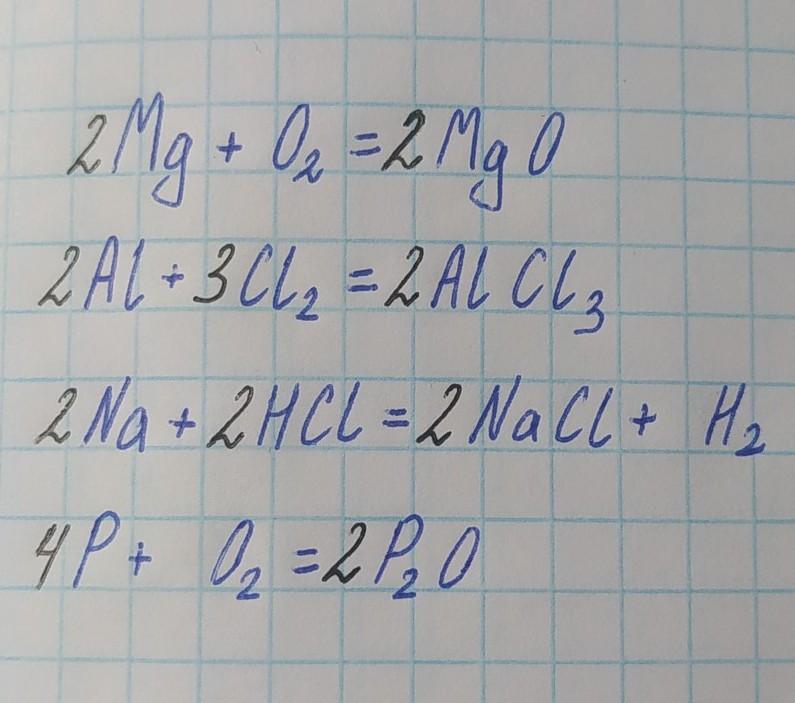 2Mg + O₂ = 2MgO
2Al + 3Cl₂ = 2AlCl₃
2Na + 2HCl = 2NaCl + H₂
4P + O₂ = 2P₂O